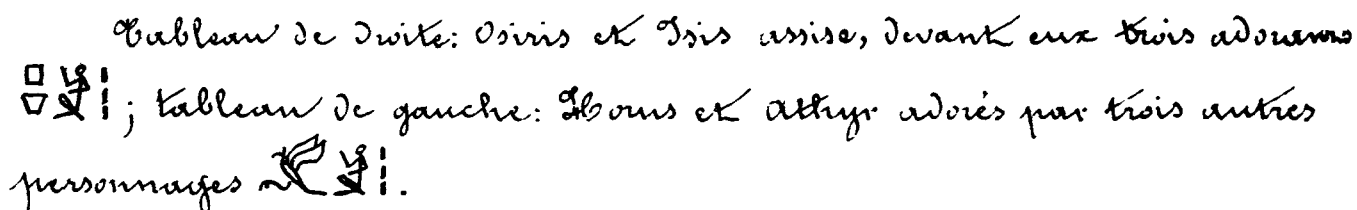 Tableau de droite: Osiris et Isis assise, devant eux trois adorants
; tableau de gauche: Horus et Athyr adorés par trois autres
personnages .